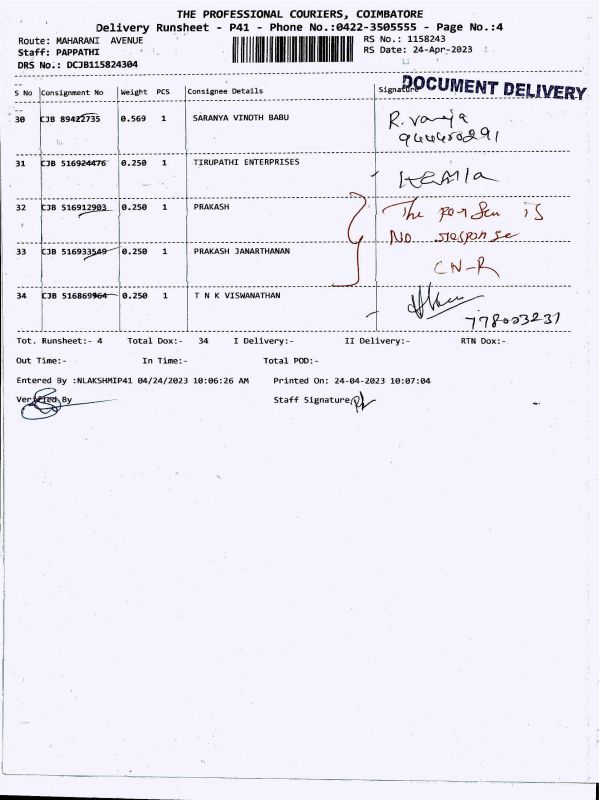 THE PROFESSIONAL COURIERS, COIMBATORE
Delivery Runsheet - P41 - Phone No.:0422-3505555 - Page No.:4
Route: MAHARANI AVENUE
RS No.: 1158243
Staff: PAPPATHI
RS Date: 24-Apr-2023
DRS No.: DCJB115824304
DOCUMENT DELIVERY
S No Consignment No Weight PCS Consignee Details Signature
30 CJB 89422735 0.569 1 SARANYA VINOTH BABU
31 CJB 516924476 0.250 1 TIRUPATHI ENTERPRISES
32 CJB 516912903 0.250 1 PRAKASH The person is
No response
33 CJB 516933549 0.250 1 PRAKASH JANARTHANAN
CN-R
34 CJB 516869964 0.250 1 T N K VISWANATHAN
778003231
Tot. Runsheet:- 4 Total Dox:- 34 I Delivery:- II Delivery:- RTN Dox:-
Out Time:- In Time:- Total POD:-
Entered By :NLAKSHMIP41 04/24/2023 10:06:26 AM Printed On: 24-04-2023 10:07:04
Verified By Staff Signature